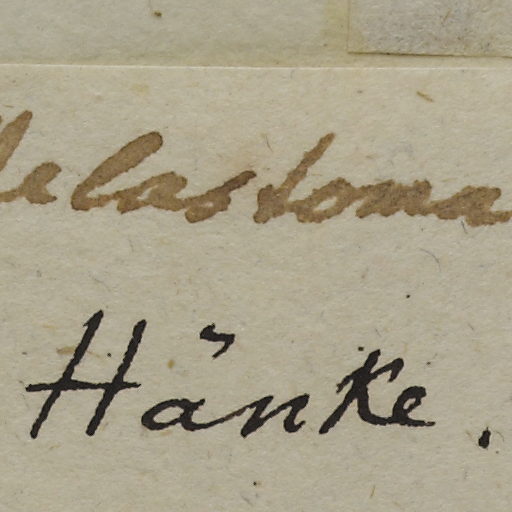 Melastoma
Hänke.